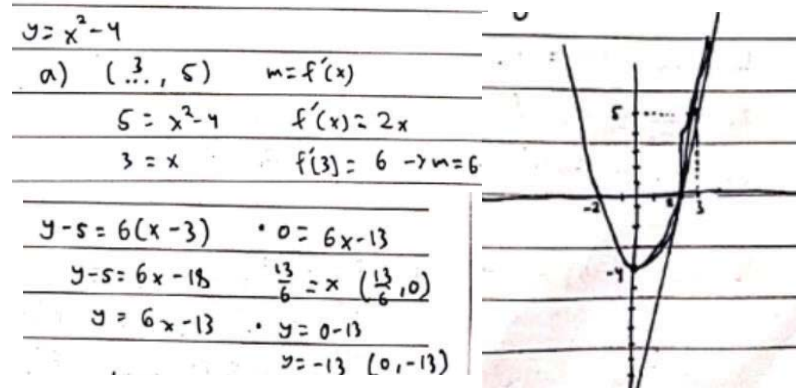 y = x² - 4
a) (3..., 5) m = f'(x)
5 = x² - 4 f'(x) = 2x
3 = x f'(3) = 6 → m = 6
y - 5 = 6(x - 3) • 0 = 6x - 13
y - 5 = 6x - 18 13/6 = x (13/6, 0)
y = 6x - 13 • y = 0 - 13
y = -13 (0, -13)
5
-2 2 3
-4